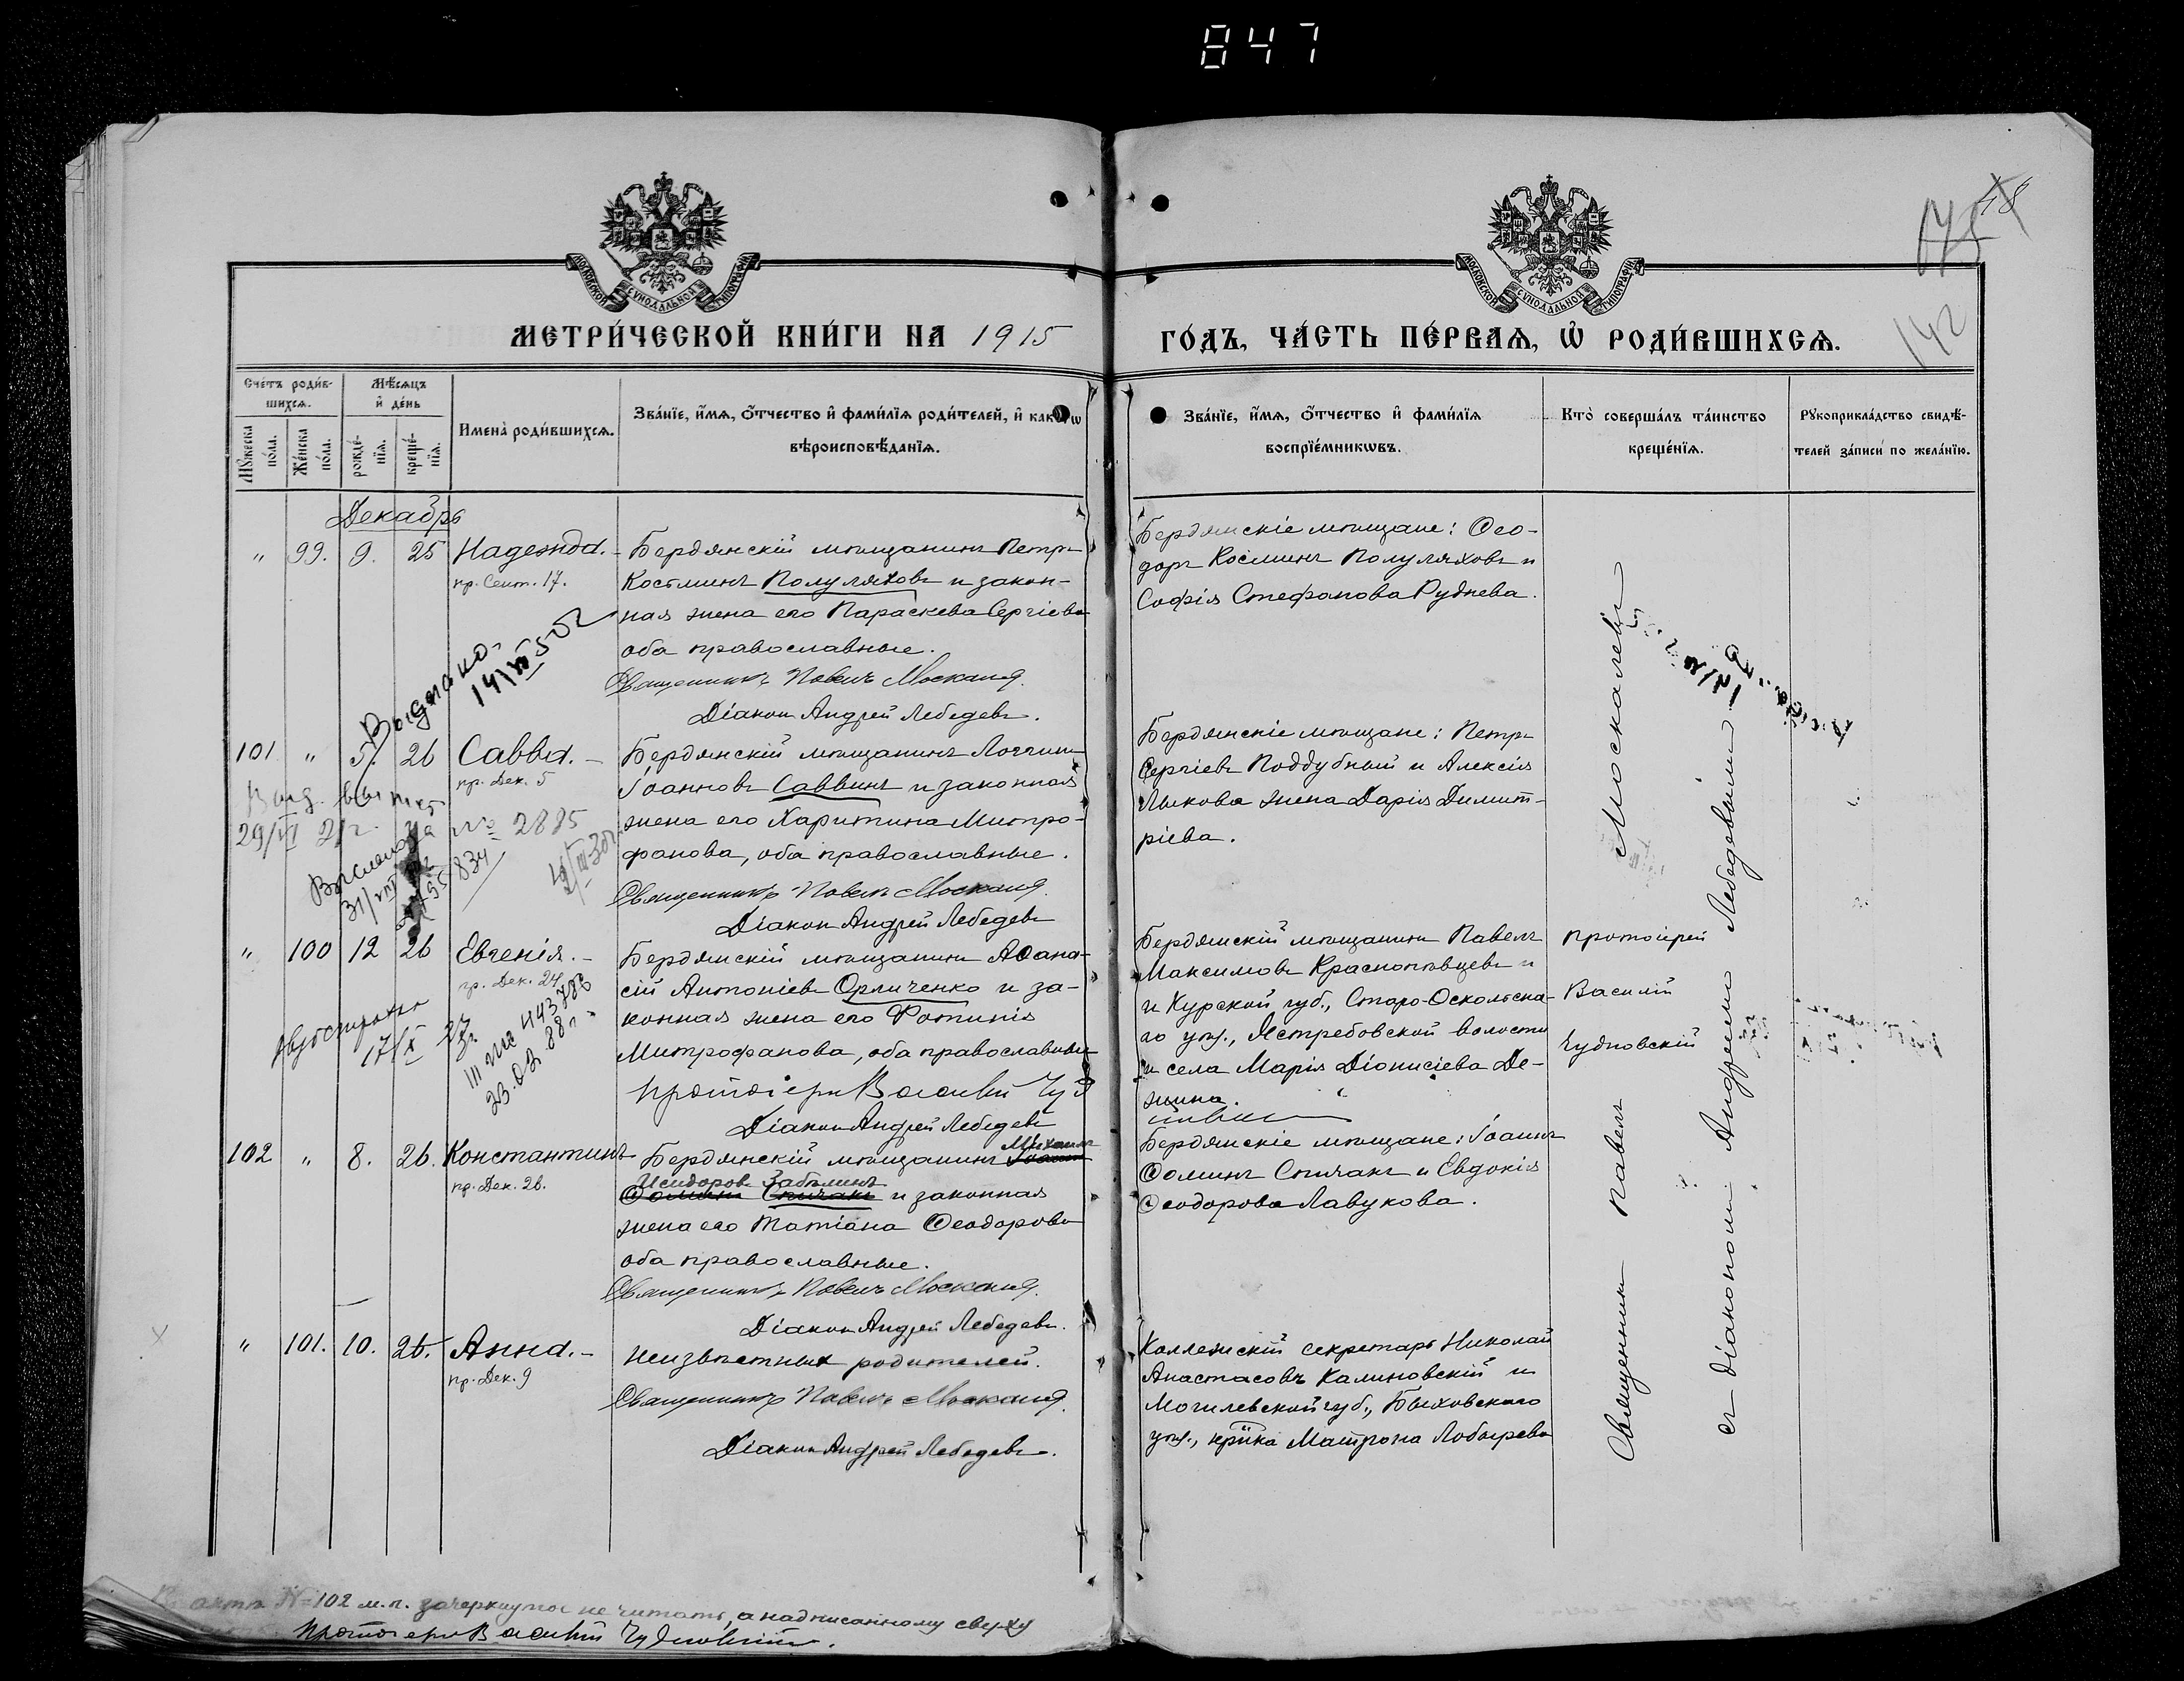 847
МОСКОВСКОЙ СѴНОДАЛЬНОЙ ТИПОГРАФІИ
МОСКОВСКОЙ СѴНОДАЛЬНОЙ ТИПОГРАФІИ
18
175
142
МЕТРИ́ЧЕСКОЙ КНИ́ГИ НА 1915
ГО́ДЪ, ЧА́СТЬ ПЕ́РВАѦ, Ѡ҆ РОДИ́ВШИХСѦ.
Сче́тъ роди́в-
шихсѧ.
Мꙋ́жеска
по́ла.
Же́нска
по́ла.
Мѣ́сѧцъ
и҆ де́нь
рожде́-
нїѧ.
креще́-
нїѧ.
Имена̀ роди́вшихсѧ.
Зва́нїе, и҆́мѧ, ѻ҆́тчество и҆ фами́лїѧ роди́телей, и҆ како́гѡ
вѣроисповѣ́данїѧ.
Зва́нїе, и҆́мѧ, ѻ҆́тчество и҆ фами́лїѧ
воспрїе́мникѡвъ.
Кто̀ соверша́лъ та́инство
креще́нїѧ.
Рꙋкоприкла́дство свидѣ́-
телей за́писи по жела́нїю.
Декабрь
" 99. 9. 25 Надежда.
пр. Сент. 17.
Бердянскій мѣщанинъ Петръ
Космин Полуляховъ и закон-
ная жена его Параскева Сергіева
оба православные.
Священникъ Павелъ Москал
Діаконъ Андрей Лебедевъ.
Бердянскіе мѣщане: Ѳео-
доръ Косминъ Полуляховъ и
Софія Стефанова Руднева.
Выдано
101 " 5. 26 Савва.
пр. Дек. 5
Бердянскій мѣщанинъ Логгинъ
Іоанновъ Саввинъ и законная
жена его Харитина Митро-
фанова, оба православные.
Священникъ Павелъ Москал
Діаконъ Андрей Лебедевъ
Бердянскіе мѣщане: Петръ
Сергіевъ Поддубный и Алексія
Лыкова жена Дарія Димит-
ріева.
29/VI 21г.
№ 2885
834
" 100 12 26 Евгенія.
пр. Дек. 24
Бердянскій мѣщанинъ Аѳана-
сій Антоніевъ Орличенко и за-
конная жена его Фотинія
Митрофанова, оба православные
протоіерей Василій Чуд
Діаконъ Андрей Лебедевъ
Бердянскій мѣщанинъ Павелъ
Максимовъ Краснопѣвцевъ и
и Курской губ., Старо-Оскольска-
го уѣз., Ястребовской волости
и села Марія Діонисіева Де-
протоіерей
Василій
Чудновскій
17/X 27г.
443786
23.03.88г.
102 " 8. 26. Константинъ
пр. Дек. 26.
Бердянскій мѣщанинъ Михаилъ
Исидоровъ Забѣлинъ
Ѳоминъ Спичакъ и законная
жена его Татіана Ѳеодорова
оба православные.
Священникъ Павелъ Москал
Діаконъ Андрей Лебедевъ.
Бердянскіе мѣщане: Іоаннъ
Ѳоминъ Спичакъ и Евдокія
Ѳеодорова Лавукова.
" 101. 10. 26. Анна.
пр. Дек. 9
неизвѣстныхъ родителей.
Священникъ Павелъ Москал
Діаконъ Андрей Лебедевъ.
Коллежскій секретарь Николай
Анастасовъ Калиновскій и
Могилевской губ., Быховскаго
уѣз., кр҃нка Матрона Лобырева
Священникъ Павелъ Москалевъ
съ діакономъ Андреемъ Лебедевымъ
актѣ № 102 м.п. зачеркнутое не читать, а надписанному сверху
Протоіерей Василій Чудновскій.